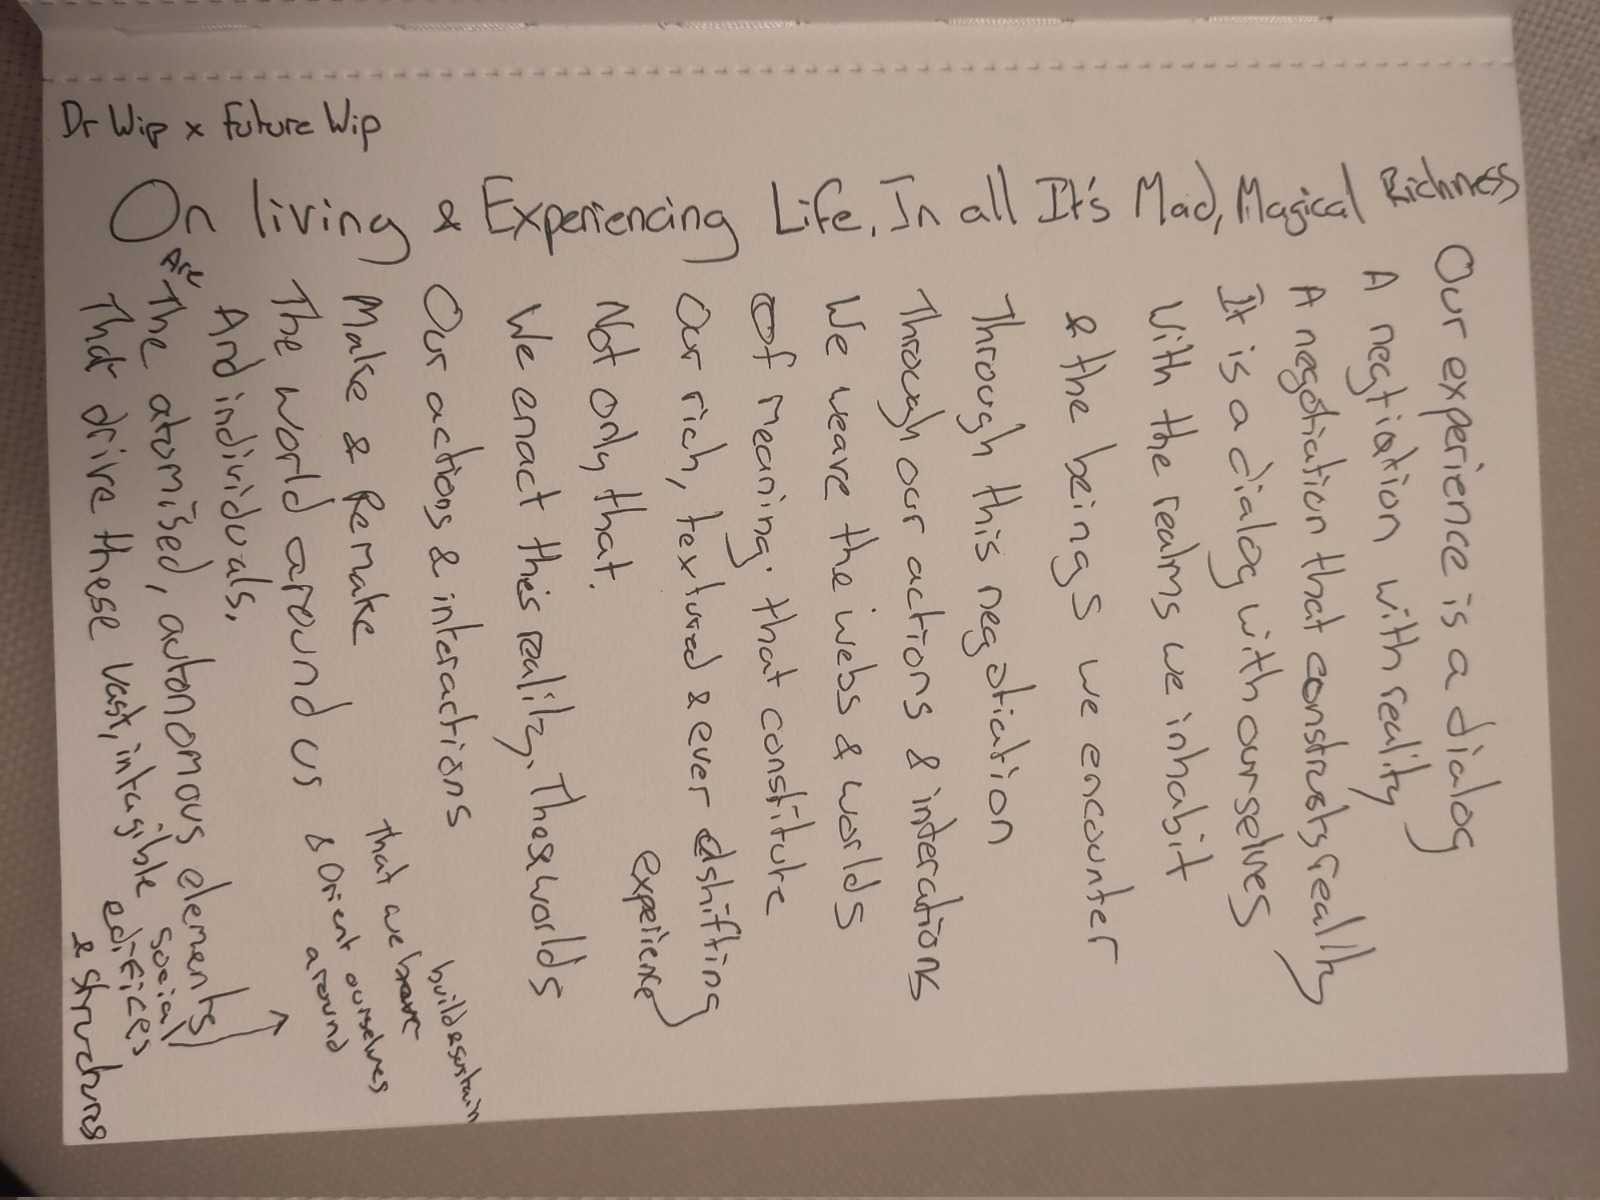 Dr Wip x Future Wip
On living & Experiencing Life, In all It's Mad, Magical Richness
Our experience is a dialog
A negtiation with reality
A negotiation that constructs really
It is a dialog with ourselves
With the realms we inhabit
& the beings we encounter
Through this negotiation
Through our actions & interations
We weave the webs & worlds
Of meaning. that constitute
Our rich, textured & ever shifting
experience
Not only that.
We enact this reality. These worlds
Our actions & interactions
Make & Remake
The world around us
And individuals,
Are The atomised, autonomous elements
That drive these vast, intagible social
edifices
& structures
that we
build & sustain
& Orient ourselves
around